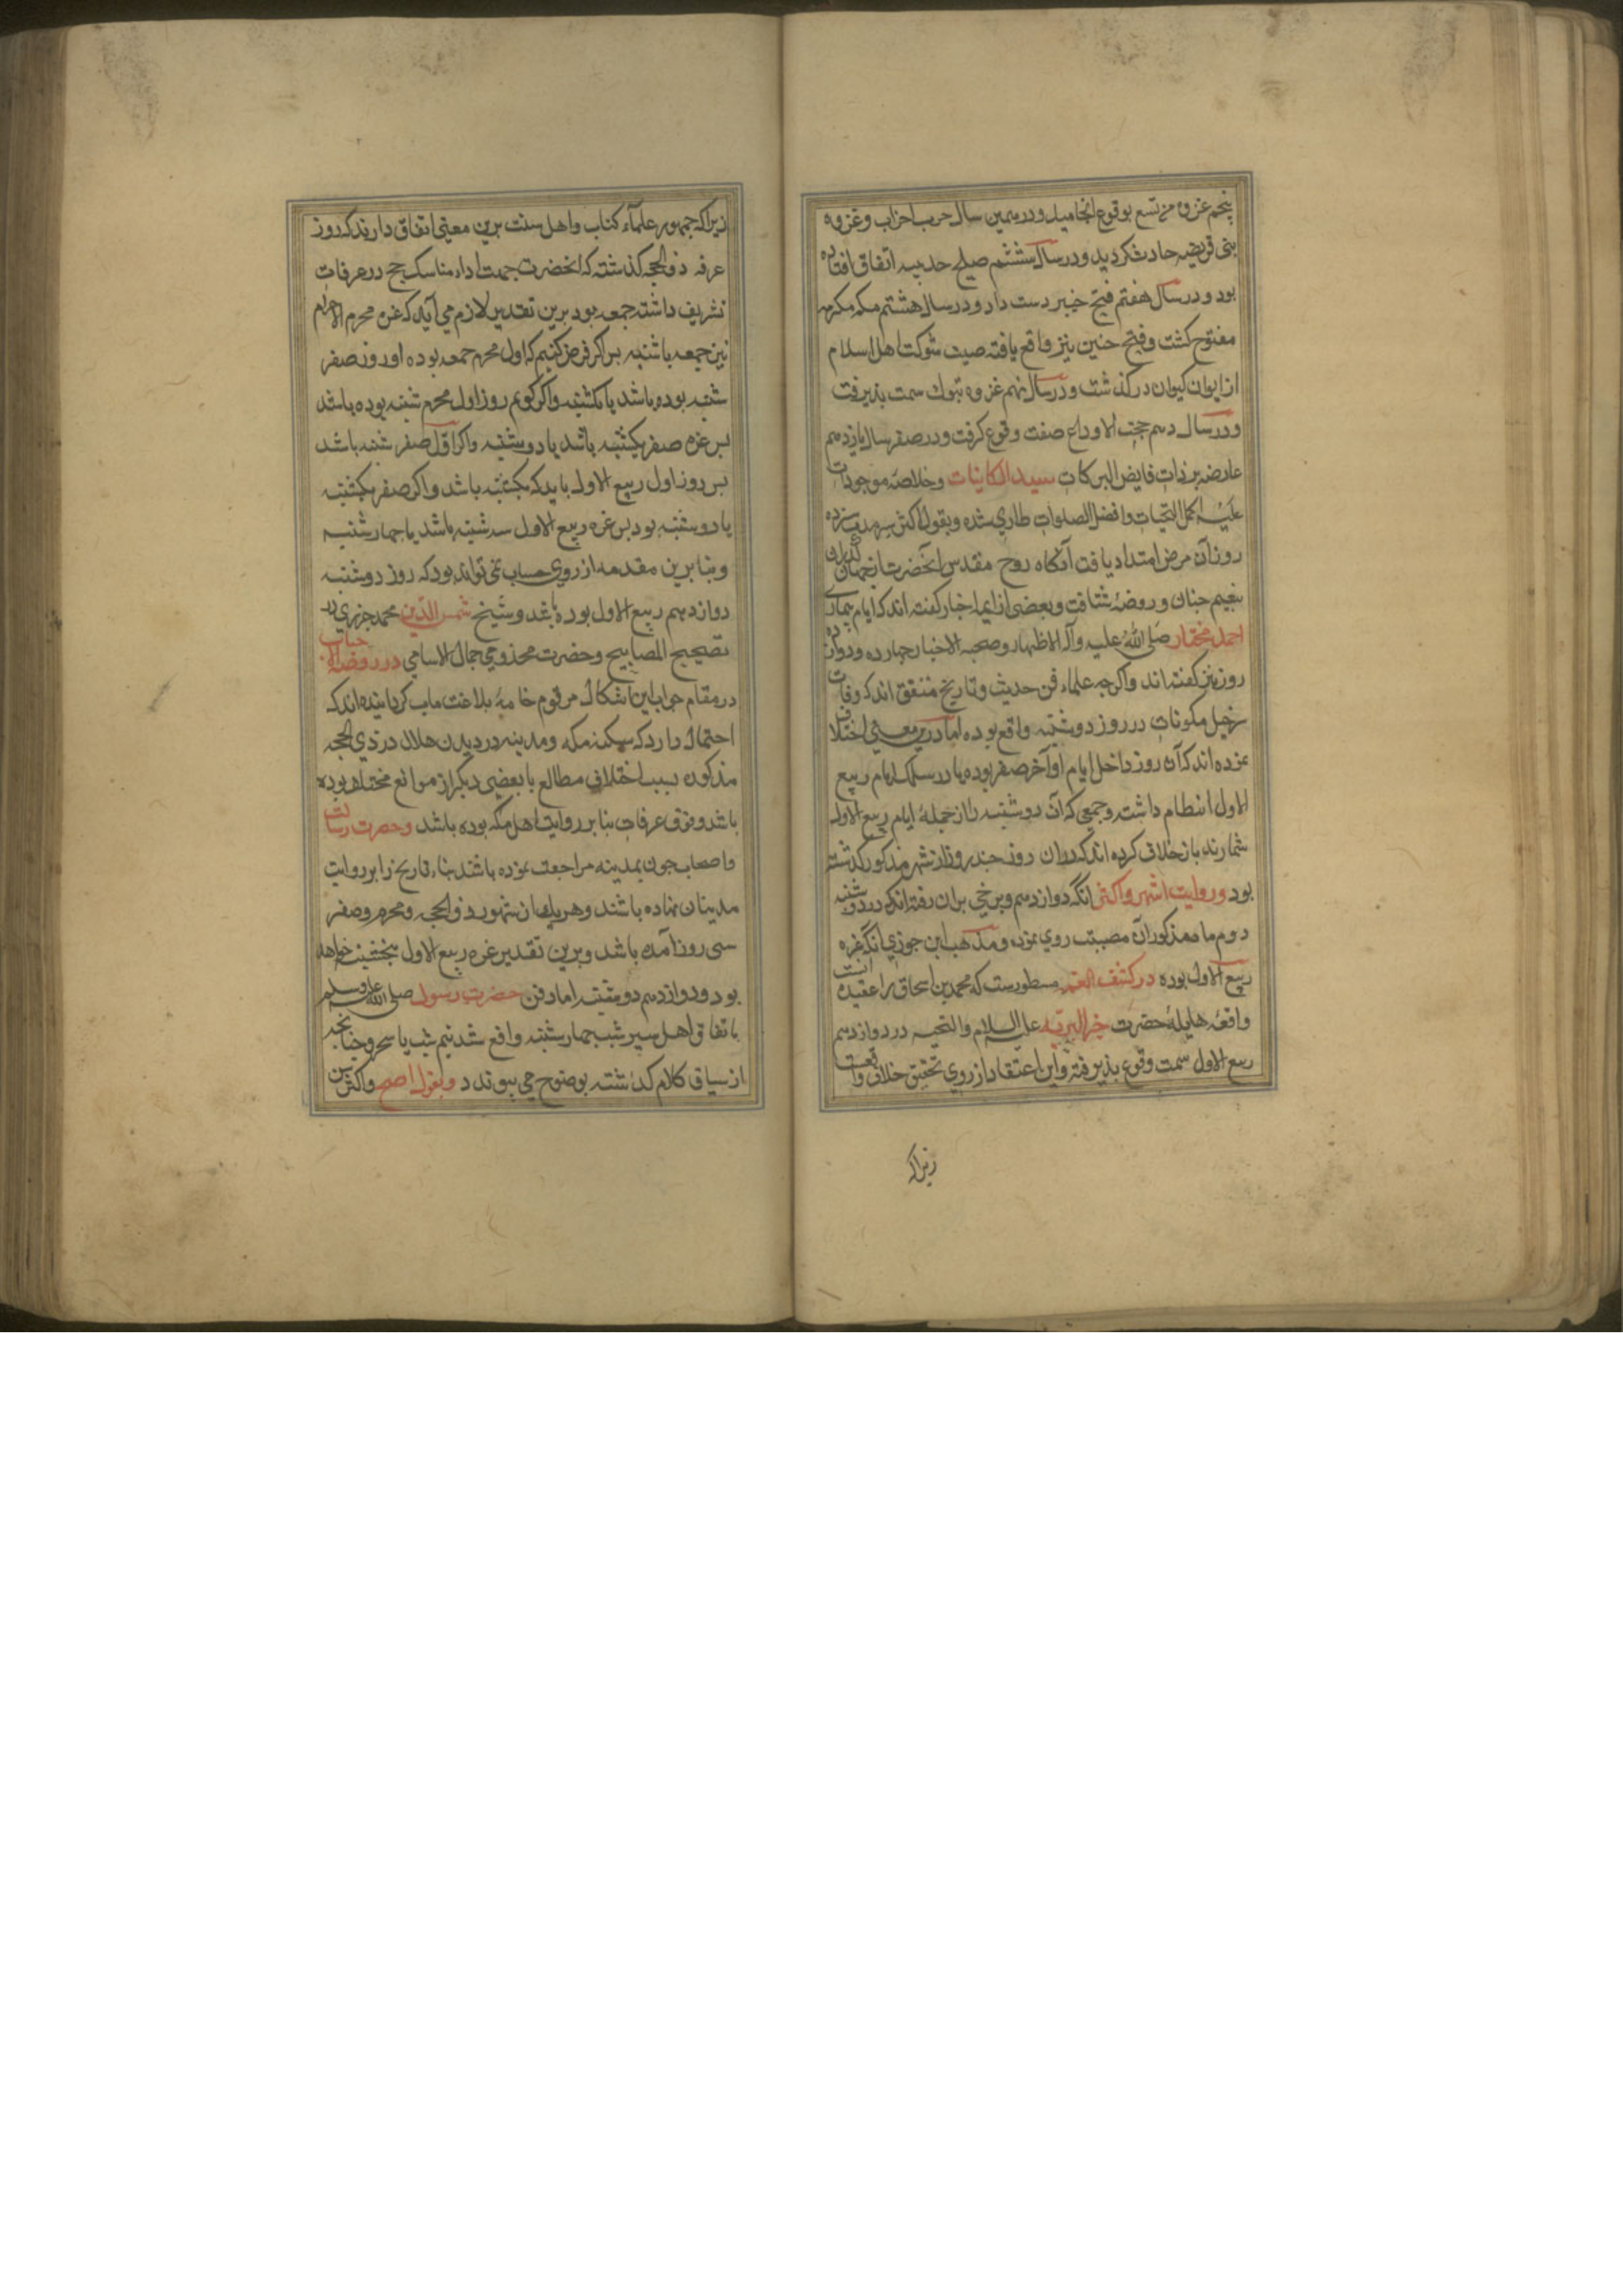 پنجم غزوه مریسیع بوقوع انجامید و در همین سال حرب احزاب و غزوه
بنی قریضه حادث کردید و در سال ششم صلح حدیبیه اتفاق افتاده
بود و در سال هفتم فتح خیبر دست داد و در سال هشتم مکه مکرمه
مفتوح کشت و فتح حنین نیز واقع یافته صیت شوکت اهل اسلام
از ایوان کیوان در کذشت و در سال نهم غزوه تبوک سمت بذیرفت
و در سال دهم حجت الاوداع صفت وقوع کرفت و در صفر سال یازدهم
عارضه بر ذات فایض البرکات سید الکاینات وخلاصه موجودات
علیه اکمل التحیات وافضل الصلوات طاری شده وبقول اکثر سیزده
روز آن مرض امتداد یافت آنکاه روح مقدس آنحضرت از جهان کذران
بنعیم جنان و روضه شتافت وبعضی از ایمه اخبار کفته اند که ایام بیماری
احمد مختار صلی الله علیه وآله الاظهار وصحبه الاخیار جهارده ودوازده
روز نیز کفته اند واکرچه علماء فن حدیث وتاریخ متفق اند که وفات
سرخیل مکونات در روز دوشنبه واقع بوده اما درین معنی اختلاف
نموده اند که آن روز داخل ایام اواخر صفر بوده یا در سلک ایام ربیع
الاول انتظام داشته وجمعی که آن دوشنبه را از جمله ایام ربیع الاول
شمارند باز خلاف کرده اند که در ان روز جند روز از شهر مذکور کذشته
بود وروایت اشهر واکثر آنکه دوازدهم وبرخی بران رفته اند که در دوشنبه
دوم ماه مذکور آن مصیبت روی نمود ومذهب ابن جوزی آنکه غره
ربیع الاول بوده در کشف الغمه مسطورست که محمد بن اسحاق را عقیده آنست
واقعه هایله حضرت خیر البریه علیه السلام والتحیه در دوازدهم
ربیع الاول سمت وقوع بذیرفته واین اعتقاد از روی تحقیق خلاف واقعست
زیراکه
زیراکه جمهور علماء کتاب واهل سنت برین معنی اتفاق دارند که روز
عرفه ذو الحجه کذشته که آنحضرت جهت اداء مناسک حج در عرفات
تشریف داشته جمعه بود برین تقدیر لازم می آید که غره محرم الحرام
نیز جمعه یا شنبه بس اکر فرض کنیم که اول محرم جمعه بوده اور وز صفر
شنبه بوده باشد یا یکشنبه واکر کوییم روز اول محرم شنبه بوده باشد
بس غره صفر یکشنبه باشد یا دوشنبه واکر اول صفر شنبه باشد
بس روز اول ربیع الاول باید که یکشنبه باشد واکر صفر یکشنبه
یا دوشنبه بود بس غره ربیع الاول سه شنبه باشد یا جهارشنبه
وبنا برین مقدمه از روی حساب نمی تواند بود که روز دوشنبه
دوازدهم ربیع الاول بوده باشد وشیخ شمس الدین محمد جزری در
تصحیح المصابیح وحضرت مخدومی جمال الاسامی در روضة الاحباب
در مقام جواب این اشکال مرقوم خامه بلاغت ماب کردانیده اند که
احتمال دارد که سکنه مکه ومدینه در دیدن هلال در ذی الحجه
مذکوره بسبب اختلاف مطالع یا بعضی دیکر از موانع مختلف بوده
باشد ووقوف عرفات بنا بر روایت اهل مکه بوده باشد وحضرت رسالت
واصحاب جون بمدینه مراجعت نموده باشند بناء تاریخ را بر روایت
مدینیان نهاده باشند وهر یک از شهور ذو الحجه ومحرم وصفر
سی روز آمده باشد وبرین تقدیر غره ربیع الاول بنجشنبه خواهد
بود ودوازدهم دوشنبه اما دفن حضرت رسول صلی الله علیه وسلم
باتفاق اهل سیر شب جهارشنبه واقع شد نیم شب یا سحر وجنانجه
از سیاق کلام کذشته بوضوح می بیوندد وبقول اصح واکثر سن